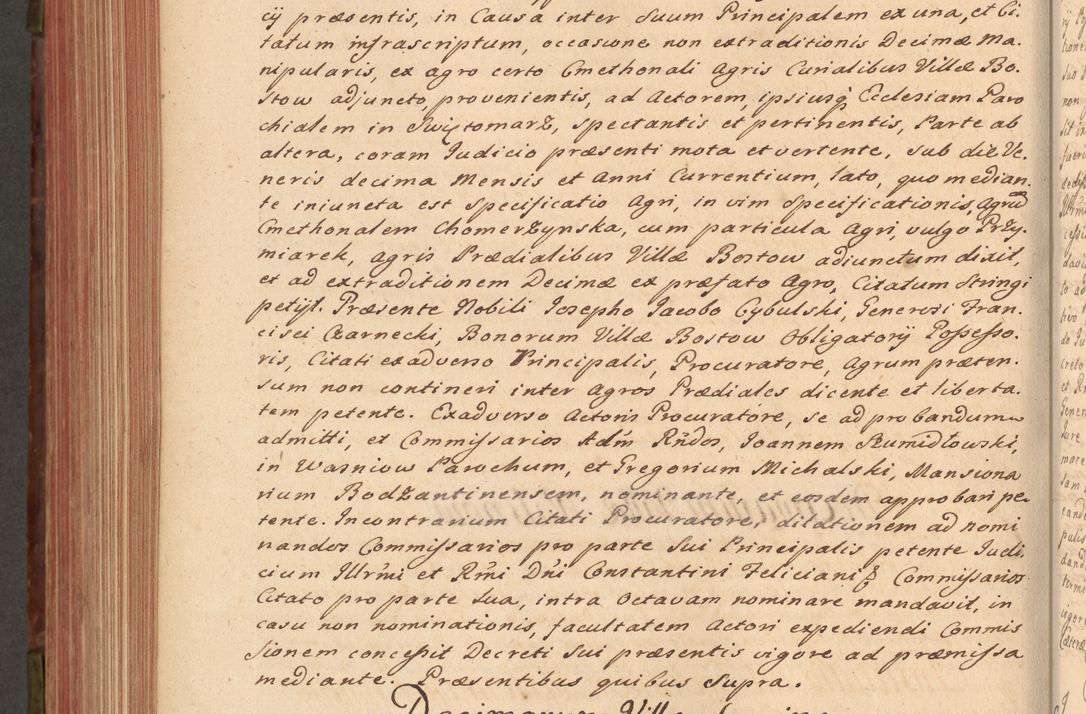 cij præsentis, in Causa inter Suum Principalem ex una, et Ci-
tatum infrascriptum, occasione non extraditionis Decimæ Ma-
nipularis, ex agro certo Cmethonali Agris Curialibus Villæ Bo-
stow adjuncto, provenientis, ad Actorem, ipsiusq Ecclesiam Paro
chialem in Swiętomarz, spectantis et pertinentis, Parte ab
altera, coram Iudicio præsenti mota et vertente, sub die Ve-
neris decima Mensis et Anni Currentium, lato, quo median-
te iniuncta est Specificatio Agri, in vim Specificationis, Agrum
Cmethonalem Chomerzynska, cum particula Agri, vulgo Przy-
miarek, agris Prædialibus Villæ Bostow adiunctum dixit,
et ad extraditionem Decimæ ex præfato Agro, Citatum Stringi
petijt. Præsente Nobili Iosepho Iacobo Cybulski, Generosi Fran-
cisci Czarnecki, Bonorum Villæ Bostow Obligatorij Possesso-
ris, Citati exadverso Principalis, Procuratore, Agrum præten-
sum non contineri inter Agros Prædiales dicente et liberta-
tem petente. Exadverso Actoris Procuratore, se ad probandum
admitti, et Commissarios Adm Rndos, Ioannem Rumidłowski,
in Wasniow Parochum, et Gregorium Michalski, Mansiona
rium Bodzantinensem, nominante, et eosdem approbari pe-
tente. In contrarium Citati Procuratore, dilationem ad nomi
nandos Commissarios pro parte Sui Principalis petente Iudi-
cium Illrmi et Rmi Dni Constantini Feliciani & Commissarios
Citato pro parte Sua, intra Octavam nominare mandavit, in
casu non nominationis, facultatem Actori expediendi Commis
sionem concessit Decreti Sui præsentis vigore ad præmissa
mediante. Præsentibus quibus Supra.